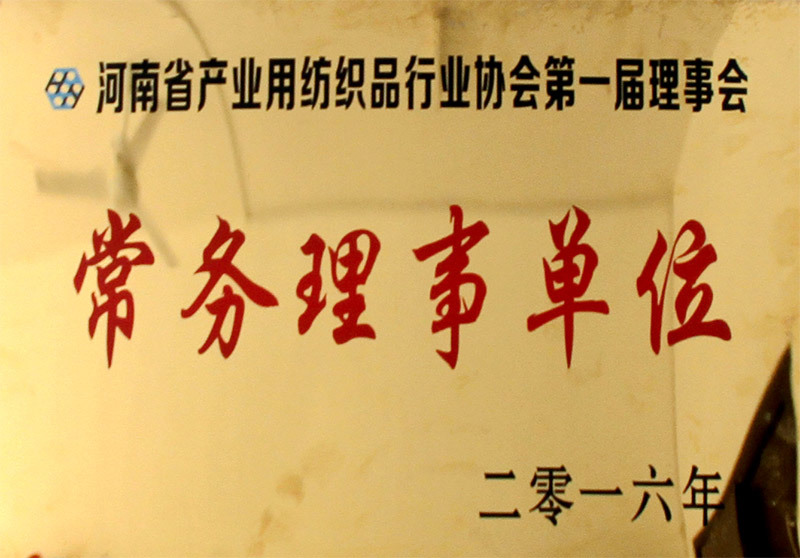 河南省产业用纺织品行业协会第一届理事会
常务理事单位
二零一六年